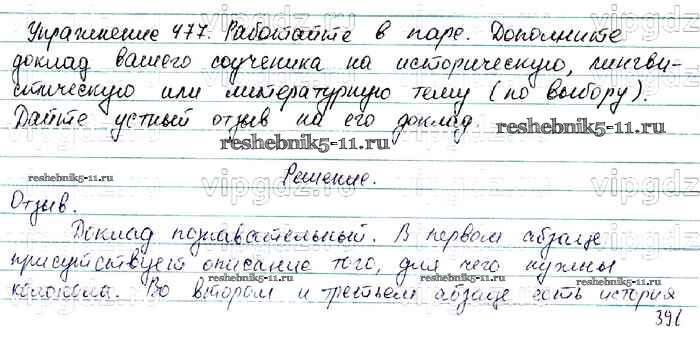 Упражнение 477. Работайте в паре. Дополните
доклад вашего соученика на историческую, лингви-
стическую или литературную тему (по выбору).
Дайте устный отзыв на его доклад.
reshebnik5-11.ru
reshebnik5-11.ru
reshebnik5-11.ru
Решение.
reshebnik5-11.ru
Отзыв.
Доклад познавательный. В первом абзаце
присутствует описание того, для чего нужны
колокола. Во втором и третьем абзаце есть история
reshebnik5-11.ru
reshebnik5-11.ru
391
vipgdz.ru